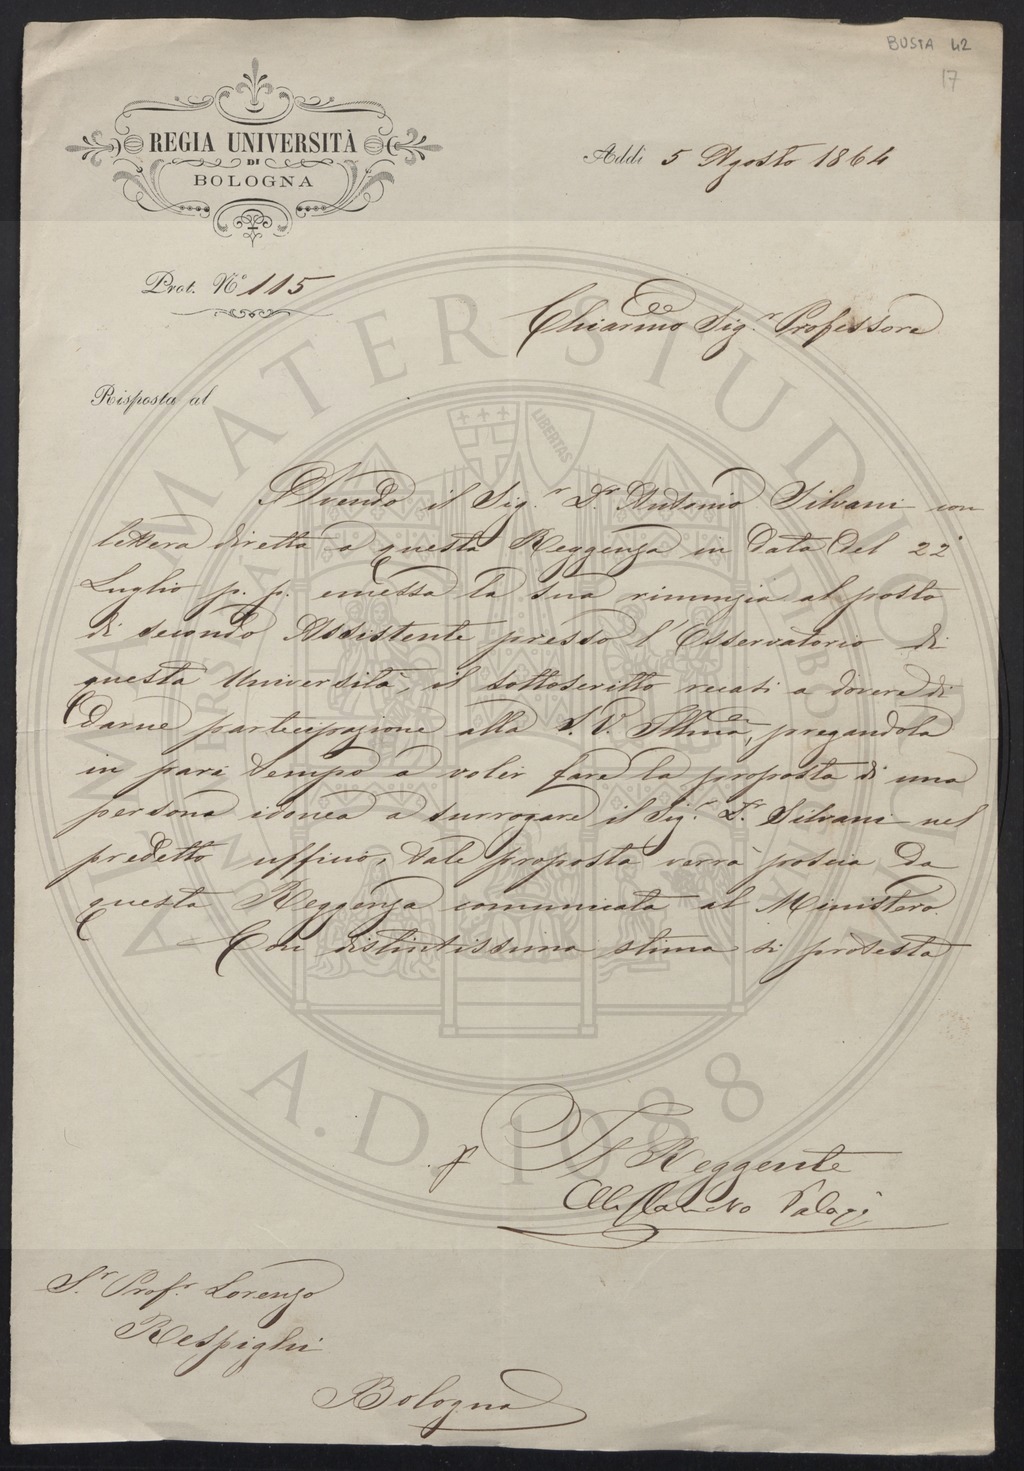 BUSTA 42
17
REGIA UNIVERSITÀ
DI
BOLOGNA
Addì 5 Agosto 1864
Prot. N.º 115
Chiarmo Sig.r Professore
Risposta al
Avendo il Sig.r D.r Antonio Silvani con
lettera diretta a questa Reggenza in data del 22
Luglio p. p. emessa la sua rinunzia al posto
di secondo Assistente presso l'Osservatorio di
questa Università, il sottoscritto recasi a dovere di
darne partecipazione alla S. V. Illma, pregandola
in pari tempo a voler fare la proposta di una
persona idonea a surrogare il Sig.r D.r Silvani nel
predetto ufficio, tale proposta verrà poscia da
questa Reggenza comunicata al Ministero.
Con distintissima stima si protesta
Il Reggente
Alessandro Palagi
S.r Prof.r Lorenzo
Respighi
Bologna
ALMA MATER STUDIORUM
UNIVERSITAS
LIBERTAS
A.D. 1088